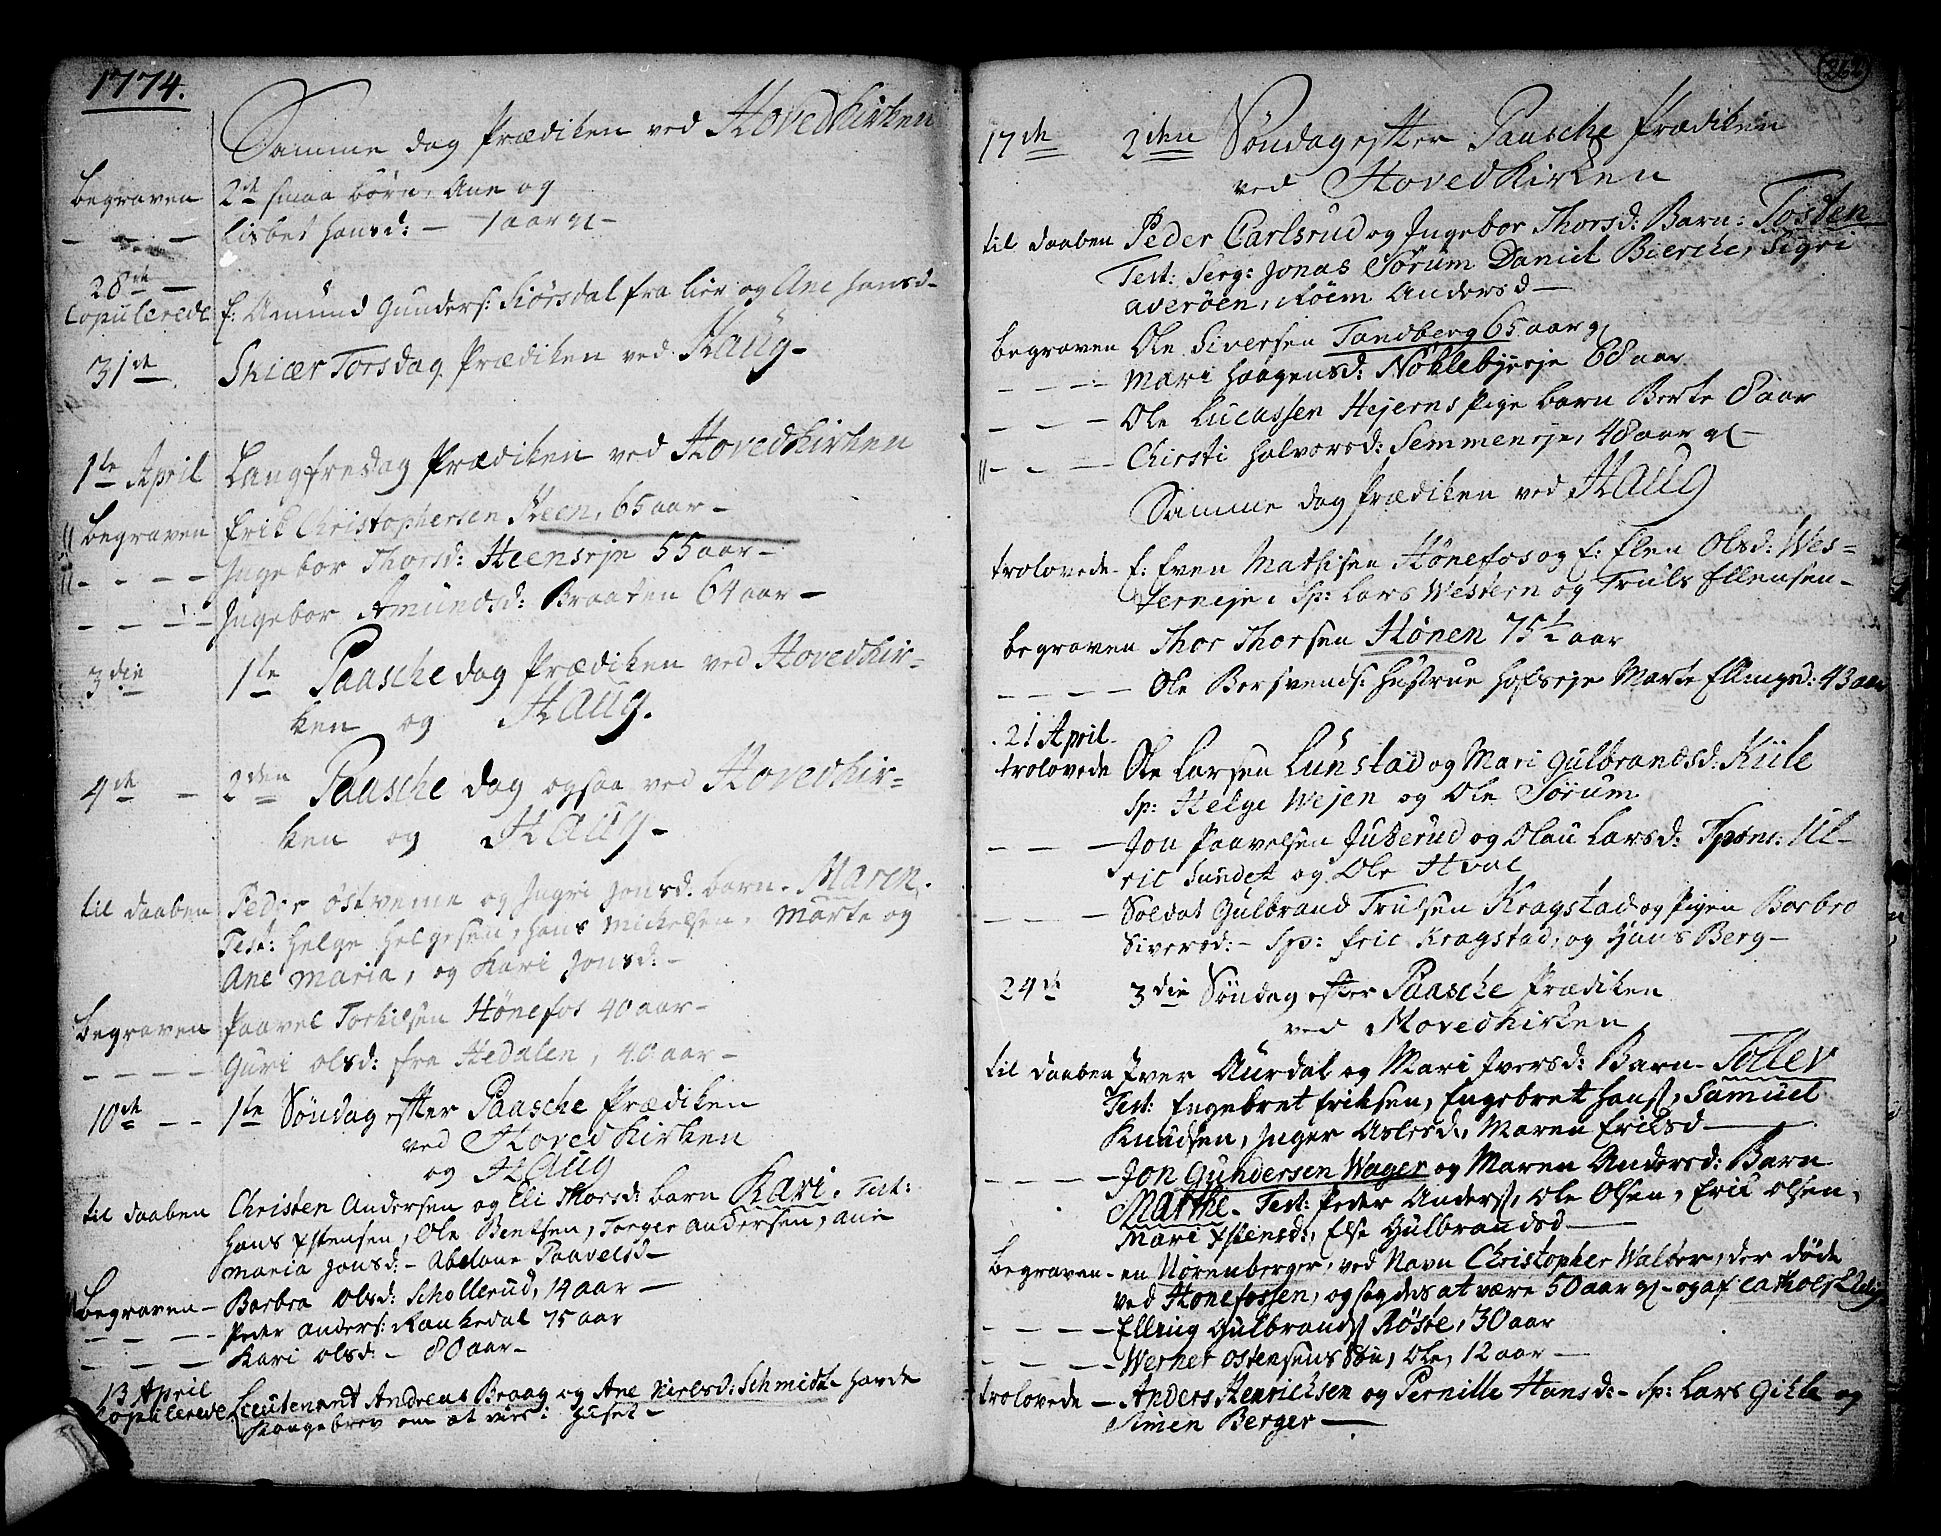 1774.
Samme dag Prædiken ved Hovedkirken
Begraven 2de smaa börn, Ane og
Lisbet Hansd: - 1 aar gl -
28de -
Copulerede f: Amund Gunders: Kiörsdal fra Lier og Ane Hansd -
31de Skiær Torsdag Prædiken ved Haug -
1te April Langfredag Prædiken ved Hovedkirken
Begraven Erik Christophersen Heen, 65 aar -
- - - - Ingebor Thorsd: Heenseje 55 aar -
- - - - Ingebor Amundsd: Braaten 64 aar -
3die 1te Paasche dag Prædiken ved Hovedkir=
ken og Haug.
4de - 2den Paasche dag ogsaa ved Hovedkir=
ken og Haug -
til daaben Peder östveme og Ingri Jonsd. barn - Maren.
Test: Helge Helgesen, Hans Mickelsen, Marte og
Ane Maria, og Kari Jonsd: -
Begraven Paavel Torkilsen Hönefos 40 aar -
- - - - Guri Olsd: fra Hedalen, 40 aar -
10de - - 1te Söndag efter Paasche Prædiken
ved Hovedkirken
og Haug
til daaben Christen Andersen og Eli Thorsd: barn Kari. Test:
Hans Xstensen, Ole Bentsen, Torger Andersen, Ane
Maria Jonsd: - Abelone Paavelsd -
Begraven - Barbra Olsd: Schollerud, 14 aar -
- - - - Peder Anders: Rankedal 75 aar
- - - Kari Olsd: - 80 aar -
13 April
Copulerede Lieutenant Andreas Braag og Ane Nielsd: Schmidt havde
Kongebrev om at vies i Huset -
262
17de 2den Söndag efter Paasche Prædiken
ved Hovedkirken
til daaben Peder Carlsrud og Ingebor Thorsd: Barn: Tosten
Test: Serg: Jonas Sörum Daniel Bierche, Sigri
Averöen, Andersd -
begraven Ole Siversen Tandberg 65 aar gl
- - - - Mari Haagensd: Noklebyeje 68 aar
- - - Ole Lucassen Hejerns Pige barn Berte 8 aar
- - - Chirsti Halvorsd: Semmeneje, 48 aar gl -
Samme dag Prædiken ved Haug
trolovede - f: Even Mathisen Hönefos og f: Elen Olsd: Wes=
terneje, Sp: Lars Western og Truls Ellensen -
begraven Thor Thorsen Hönen 75 1/2 aar
- - - - Ole Bersvends: Hustrue Hofseje Marte Ellingsd: 43 aar
21 April
trolovede Ole Larsen Lunstad og Mari Gulbrandsd: Kiile
Sp: Helge Wejen og Ole Sörum
- - - Jon Paavelsen Juterud og Olau Larsd: Spons: Ul-
ric Sundet og Ole Hval
- - - - Soldat Gulbrand Trulsen Kragstad og Pigen Barbro
Siversd: - Sp: Eric Kragstad, og Hans Berg -
24de 3die Söndag efter Paasche Prædiken
ved Hovedkirken
til daaben Iver Aurdal og Mari Iversd: Barn - Tollev
Test: Engebret Eriksen, Engebret Hans:, Samuel
Knudsen, Inger Aslesd:, Maren Eriksd -
- - - - Jon Gundersen Wager og Maren Andersd: Barn
Marthe - Test: Peder Anders:, Ole Olsen, Erik Olsen,
Mari Xstensd:, Else Gulbrandsd -
Begraven - en Nörenberger, ved Navn Christopher Walter, der döde
ved Hönefossen, og sagdes at være 50 aar gl - og af catholsk
- - - - Elling Gulbrands: Rösöe, 30 aar
- - - - Werner Ostensens Sön, Ole, 12 aar -
trolovede - Anders Henrichsen og Pernille Hansd: - Sp: Lars Gikle og
Simen Berger -